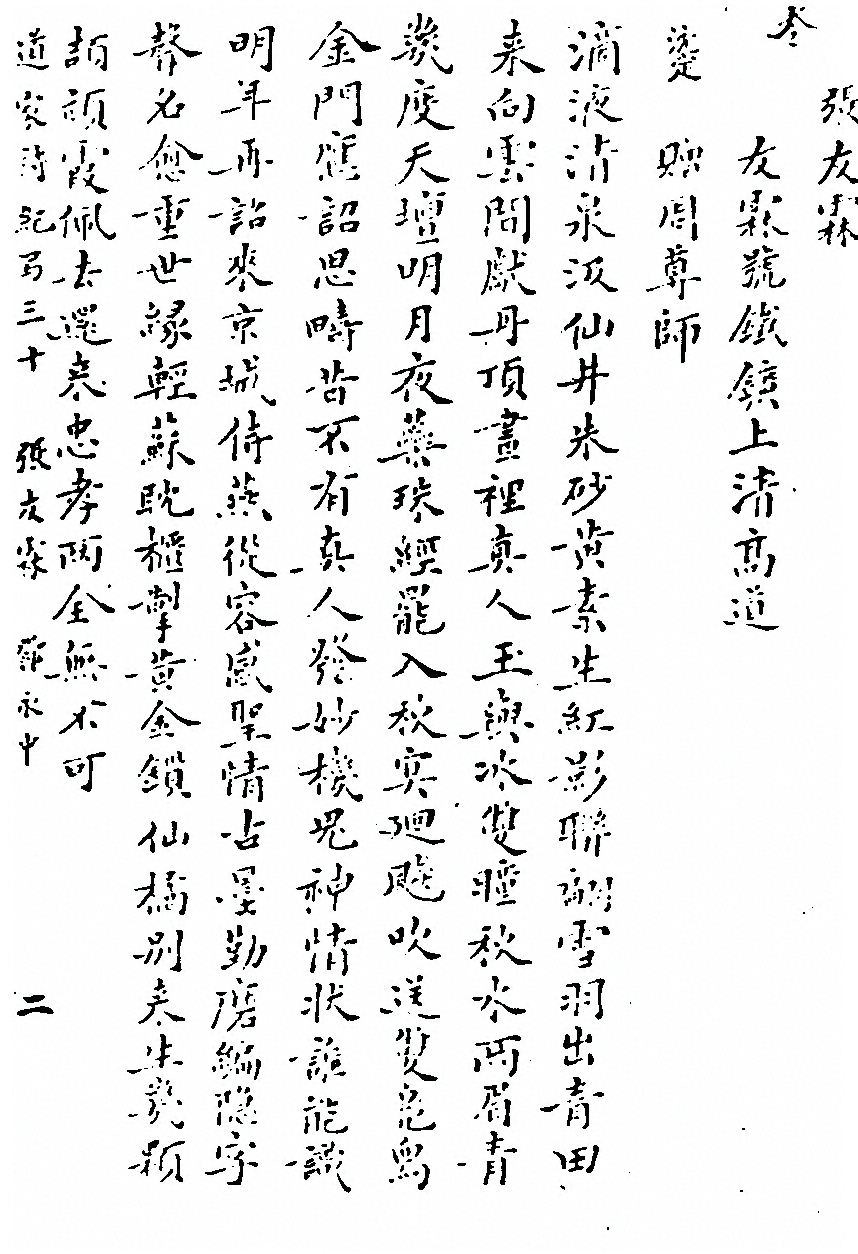 張友霖
友霖號鐵鑛上清高道
贈周尊師
滴液清泉汲仙井朱砂黃素生紅影聯翩雪羽出青田
来向雲間獻丹頂畫裡真人玉與冰雙瞳秋水兩眉青
幾度天壇明月夜蘂珠經罷入秋冥廻飈吹送雙鳧舄
金門應詔思疇昔不有真人發妙機鬼神情狀誰能識
明年再詔来京城侍燕從容感聖情古墨勤磨編隱字
聲名愈重世緣輕蘇耽櫃掣黃金鎖仙橘別来生幾顆
頡頏霞佩去還来忠孝兩全無不可
道家詩紀 三十 張友霖 鄧永中 二